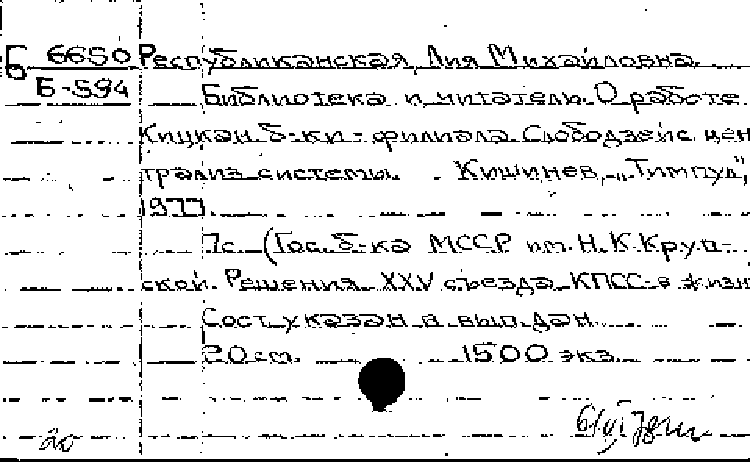 Б 6650 Республиканская, Лия Михайловна.
Б-594 Библиотека и читатель. О работе
Кицкан. б-ки-филиала Слободзейс. цен
трализ. системы. Кишинев, „Тимпул",
1977.
7с. (Гос. б-ка МССР им. Н. К. Круп-
ской. Решения XXV съезда КПСС-в жизн
Сост. указан в вып. дан.
20 см. 1500 экз.